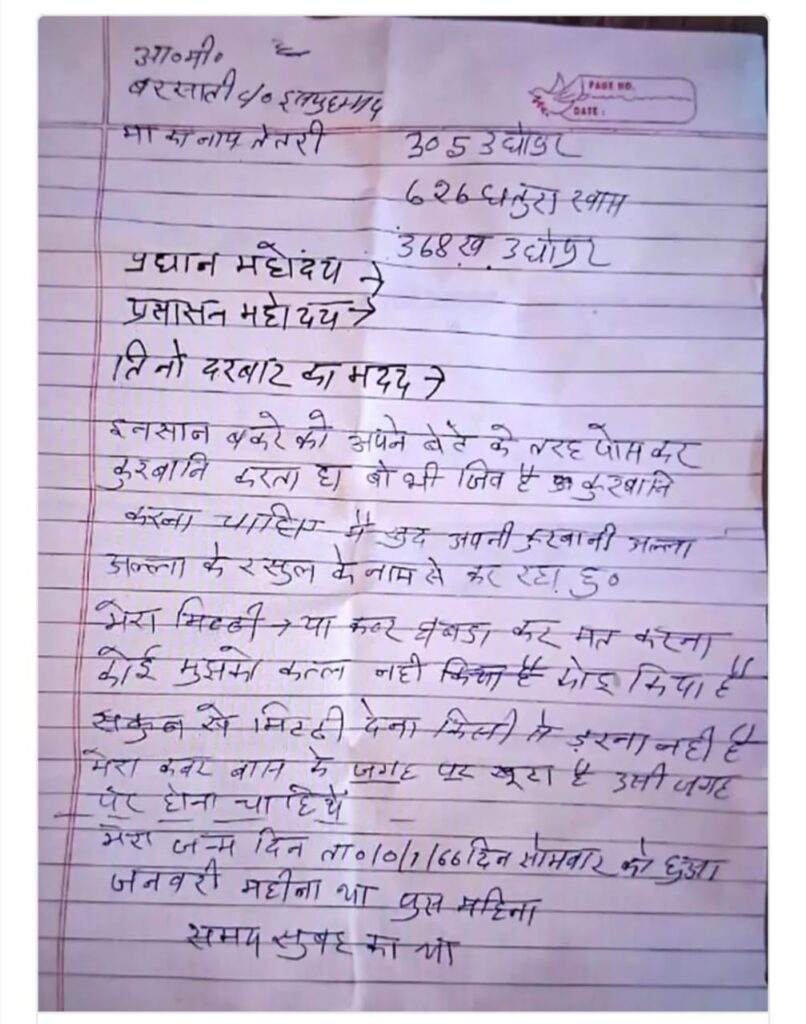 आ०मी०
बरसाती c/o
PAGE NO.
DATE :
मा का नाम तेतरी
305 उधोपुर
626 धतुरा खास
368 ख. उधोपुर
प्रधान महोदय →
प्रसासन महोदय →
तिनो दरबार का मदद →
इनसान बकरे को अपने बेटे के तरह पोस कर
कुरबानि करता हा बो भी जिव है कुरबानि
करना चाहिए मै खुद अपनी कुरबानी अल्ला
अल्ला के रसुल के नाम से कर रहा हु०
मेरा मिटटी → या कबर घबडा कर मत करना
कोई मुझको कत्ल नही किया है कोई किया है
सकुन से मिटटी देना किसी से डरना नही है
मेरा कबर बास के जगह पर खूटा है उसी जगह
पर होना चाहिये
मेरा जन्म दिन ता० /0/1/66 दिन सोमबार को हुआ
जनवरी महीना था पुस महिना
समय सुबह का था